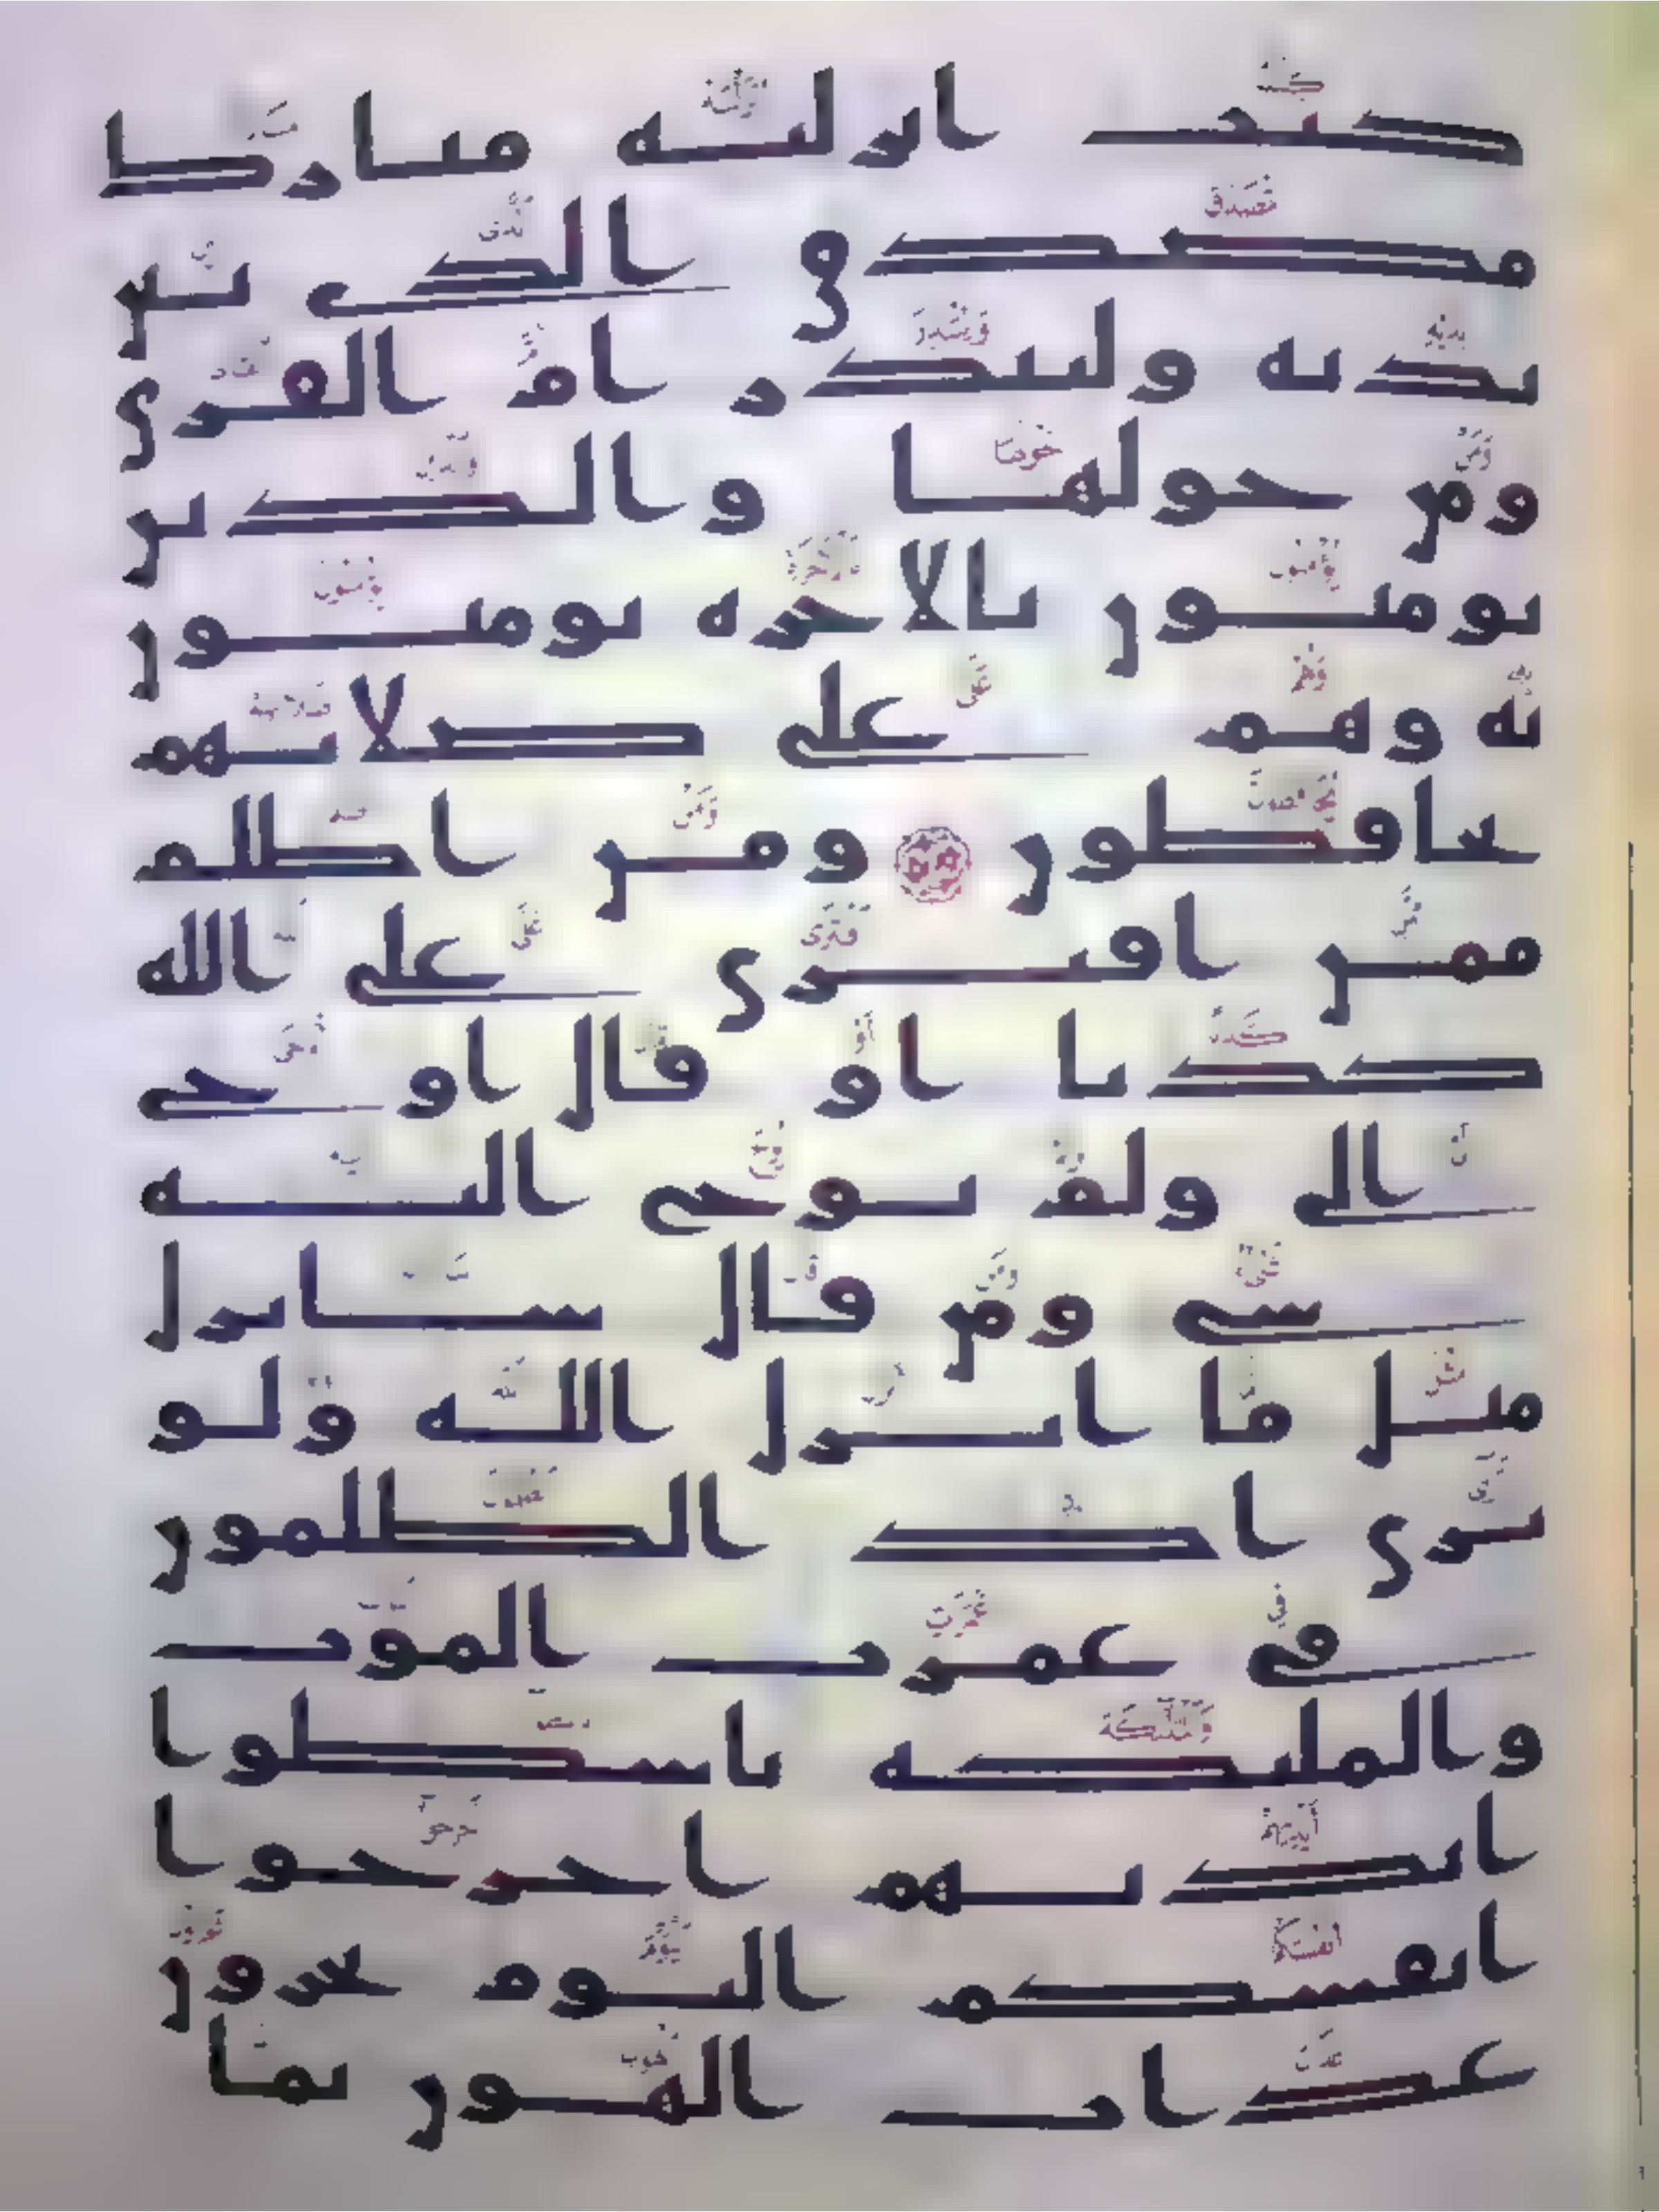 كتب انزلنه مبارك
مصدق الذي بين
يديه ولتنذر ام القرى
ومن حولها والذين
يومنون بالاخرة يومنون
به وهم على صلاتهم
يحافظون ومن اظلم
ممن افترى على الله
كذبا او قال اوحي
الي ولم يوح اليه
شي ومن قال سانزل
مثل ما انزل الله ولو
ترى اذ الظلمون
في غمرت الموت
والمليكة باسطوا
ايديهم اخرجوا
انفسكم اليوم تجزون
عذاب الهون بما